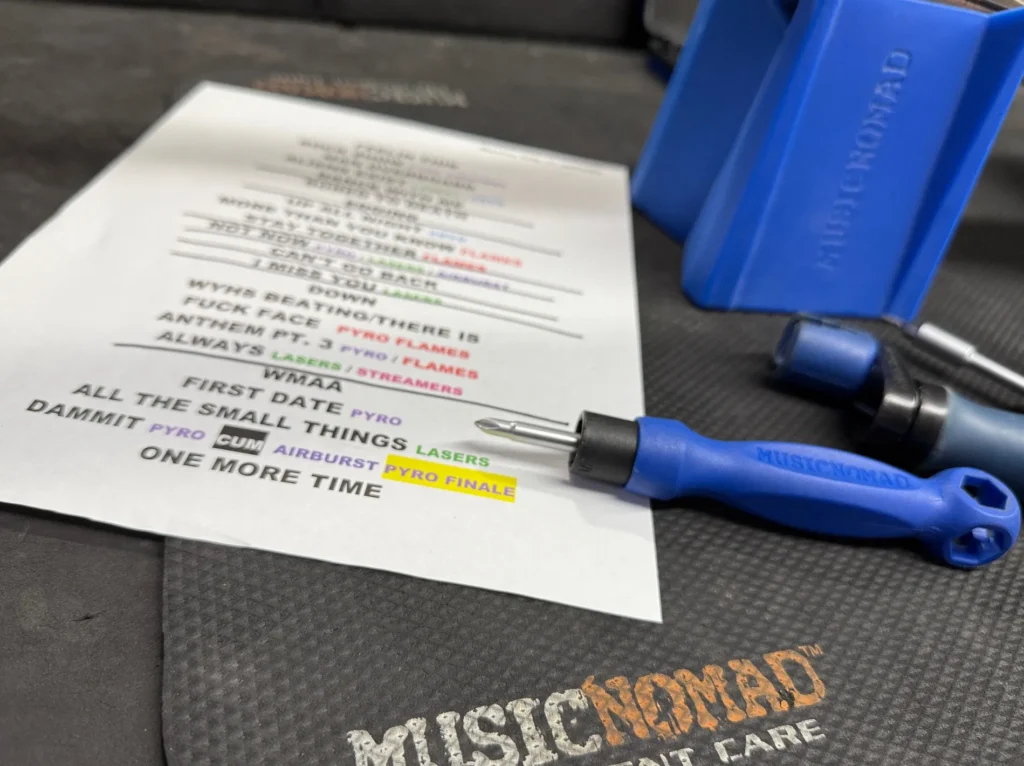 UP ALL NIGHT
MORE THAN YOU KNOW FLAMES
STAY TOGETHER FLAMES
NOT NOW PYRO / LASERS / AIRBURST
CAN'T GO BACK
I MISS YOU LASERS
DOWN
WYHS BEATING/THERE IS
FUCK FACE PYRO FLAMES
ANTHEM PT. 3 PYRO / FLAMES
ALWAYS LASERS / STREAMERS
WMAA
FIRST DATE PYRO
ALL THE SMALL THINGS LASERS
DAMMIT PYRO CUM AIRBURST PYRO FINALE
ONE MORE TIME
MUSICNOMAD
MUSICNOMAD
MUSICNOMAD™
NT CARE